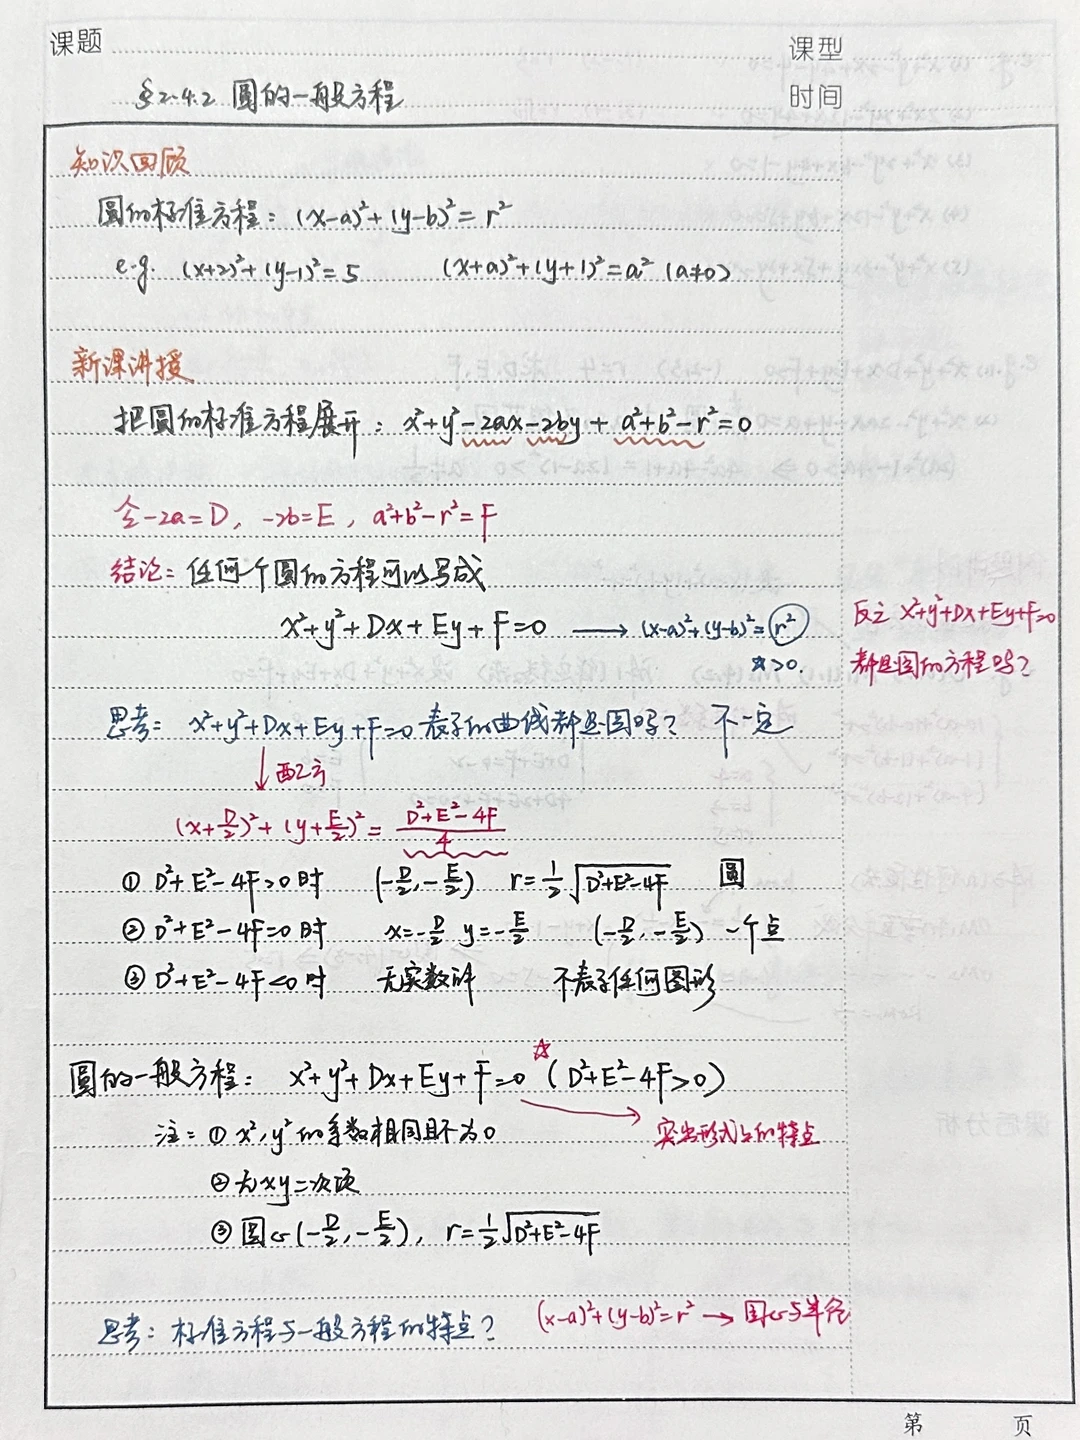 课题
课型
§2.4.2 圆的一般方程
时间
知识回顾
圆的标准方程：(x-a)²+(y-b)²=r²
e.g. (x+2)²+(y-1)²=5 (x+a)²+(y+1)²=a² (a≠0)
新课讲授
把圆的标准方程展开：x²+y²-2ax-2by+a²+b²-r²=0
令-2a=D，-2b=E，a²+b²-r²=F
结论：任何一个圆的方程可以写成
x²+y²+Dx+Ey+F=0 → (x-a)²+(y-b)²=r²
☆>0.
反之 x²+y²+Dx+Ey+F=0
都是圆的方程吗？
思考：x²+y²+Dx+Ey+F=0表示的曲线都是圆吗？ 不一定
↓配方
(x+D/2)²+(y+E/2)²=(D²+E²-4F)/4
① D²+E²-4F>0时 (-D/2,-E/2) r=1/2√(D²+E²-4F) 圆
② D²+E²-4F=0时 x=-D/2 y=-E/2 (-D/2,-E/2) 一个点
③ D²+E²-4F<0时 无实数解 不表示任何图形
圆的一般方程：x²+y²+Dx+Ey+F=0 ☆(D²+E²-4F>0)
注：① x²,y²的系数相同且不为0
→ 突出形式上的特点
② 无xy二次项
③ 圆心(-D/2,-E/2)，r=1/2√(D²+E²-4F)
思考：标准方程与一般方程的特点？ (x-a)²+(y-b)²=r² → 圆心与半径
第 页